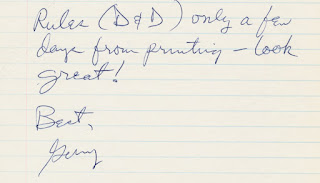 Rules (D & D) only a few
days from printing – look
great!
Best,
Gary